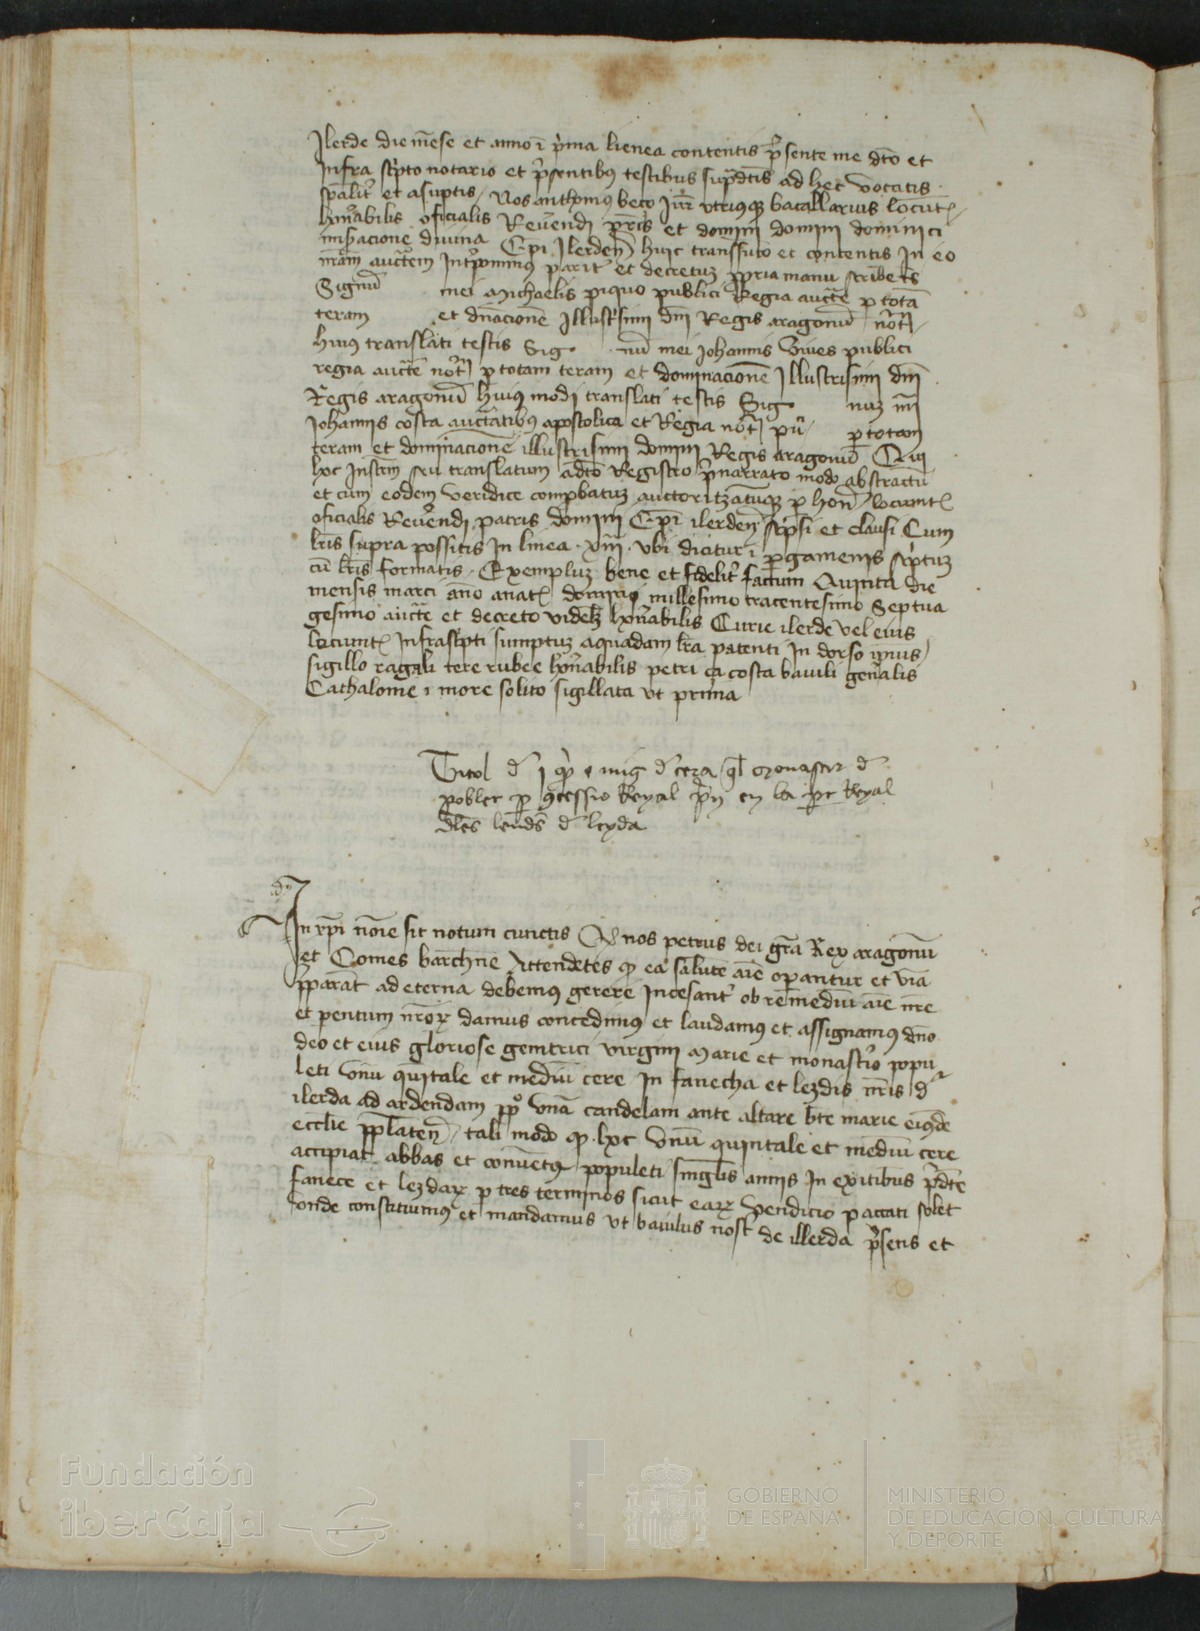 Ilerde die mēse et anno ī prima lienea contentis p̄sente me dc̄to et
Infra sc̄pto notario et p̄sentibus testibus sup̄dc̄tis ad hec vocatis
sp̄alit̄ et asuptis. Nos anthonius beço Iur̄ utriusq̨ bacallarius locūt
honōrabilis oficialis Reu̇endi pr̄is et domini domini dominici
misacione divina Ep̄i Ilerdēn huic transūto et contentis In eo
nr̄am auctēm Int̄ponimus parit̄ et decretuz ppria manu scribētes
Signū mei Michaelis piquo publici Regia auctē p totā
teram et dn̄acionē Illustrisimi dn̄i Regis aragonū not̄
huius translati testis Sig nū mei Johannis Vives publici
regia auctē not̄ p totam teram et dominacionē Illustrisimi dn̄i
Regis aragonū huius modi translati testis Sig nuz m̄i
Johannis costa auctātibus apostolica et Regia not̄ pū p totam
teram et dominacionē illustrisimi domini Regis aragonū Qui
hoc Instm̄ seu translatum adc̄to Registro p̄narrato modo abstractū
et cum eodem veridice compbatuz auctoritzatumq̨ p hon̄ locumt̄
oficialis Reu̇endi patris domini Ep̄i ilerdēn scp̄si et clausi Cum
lr̄is supra possitis In linea xiiii ubi dicitur ī pergamenis scriptuz
cū lr̄is formatis. Exempluz bene et fidelit̄ factum Quinta die
mensis marci año anat̄ domini millesimo tracentesimo Septua
gesimo auctē et decreto videlz honōrabilis Curie ilerde vel eius
locumt̄ Infrasc̄pti sumptuz aquadam lr̄a patenti In dorso ipius
sigillo ragali cere rubee honōrabilis petri ça costa baiuli gen̄alis
Cathalonie ī more solito sigillata ut prima
Titol d̄ j q̄r e mig d̄ cera q̄l monastir d̄
poblet p ꝯcessio Reyal p̄n en la p̄t Reyal
dl̄es leud̄s d̄ leyda
In xp̄i noīe sit notum cunctis Q̄ nos petrus dei gr̄a Rex aragonū
et Comes barchn̄e Attendētes q̨ ea salutē aīe operantur et viā
pparāt ad eterna debemus gerere Incesant̄ ob remediū aīe nr̄e
et pentum nr̄oꝝ damus concedimus et laudamus et assignamus dn̄o
deo et eius gloriose genitrici virgini Marie et monast̄io popu
leti vnū quitale et mediū cere In fanecha et lezdis nr̄is d̄
ilerda ad ardendam pp̄o vnā candelam ante altare bt̄e marie eiusdē
ecclīe pplatēn tali modo q̨ hoc vnū quintale et mediū cere
accipiat abbas et conuētus populeti singl̄is annis In exitibus p̄dc̄te
fanece et lezdaꝝ p tres terminos sicut eaꝝ vendicio paccati solet
onde constituimus et mandamus ut baiulus nost̄ de illerda p̄sens et
Fundación
iberCaja
GOBIERNO
DE ESPAÑA
MINISTERIO
DE EDUCACIÓN, CULTURA
Y DEPORTE